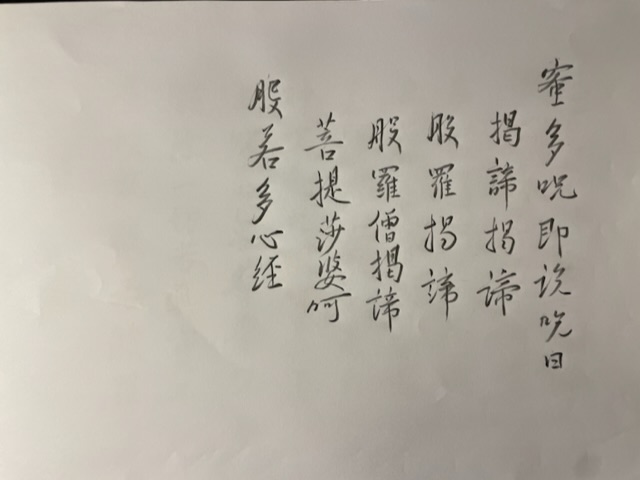 蜜多呪即説呪曰
揭諦揭諦
般羅揭諦
般羅僧揭諦
菩提莎婆呵
般若多心経